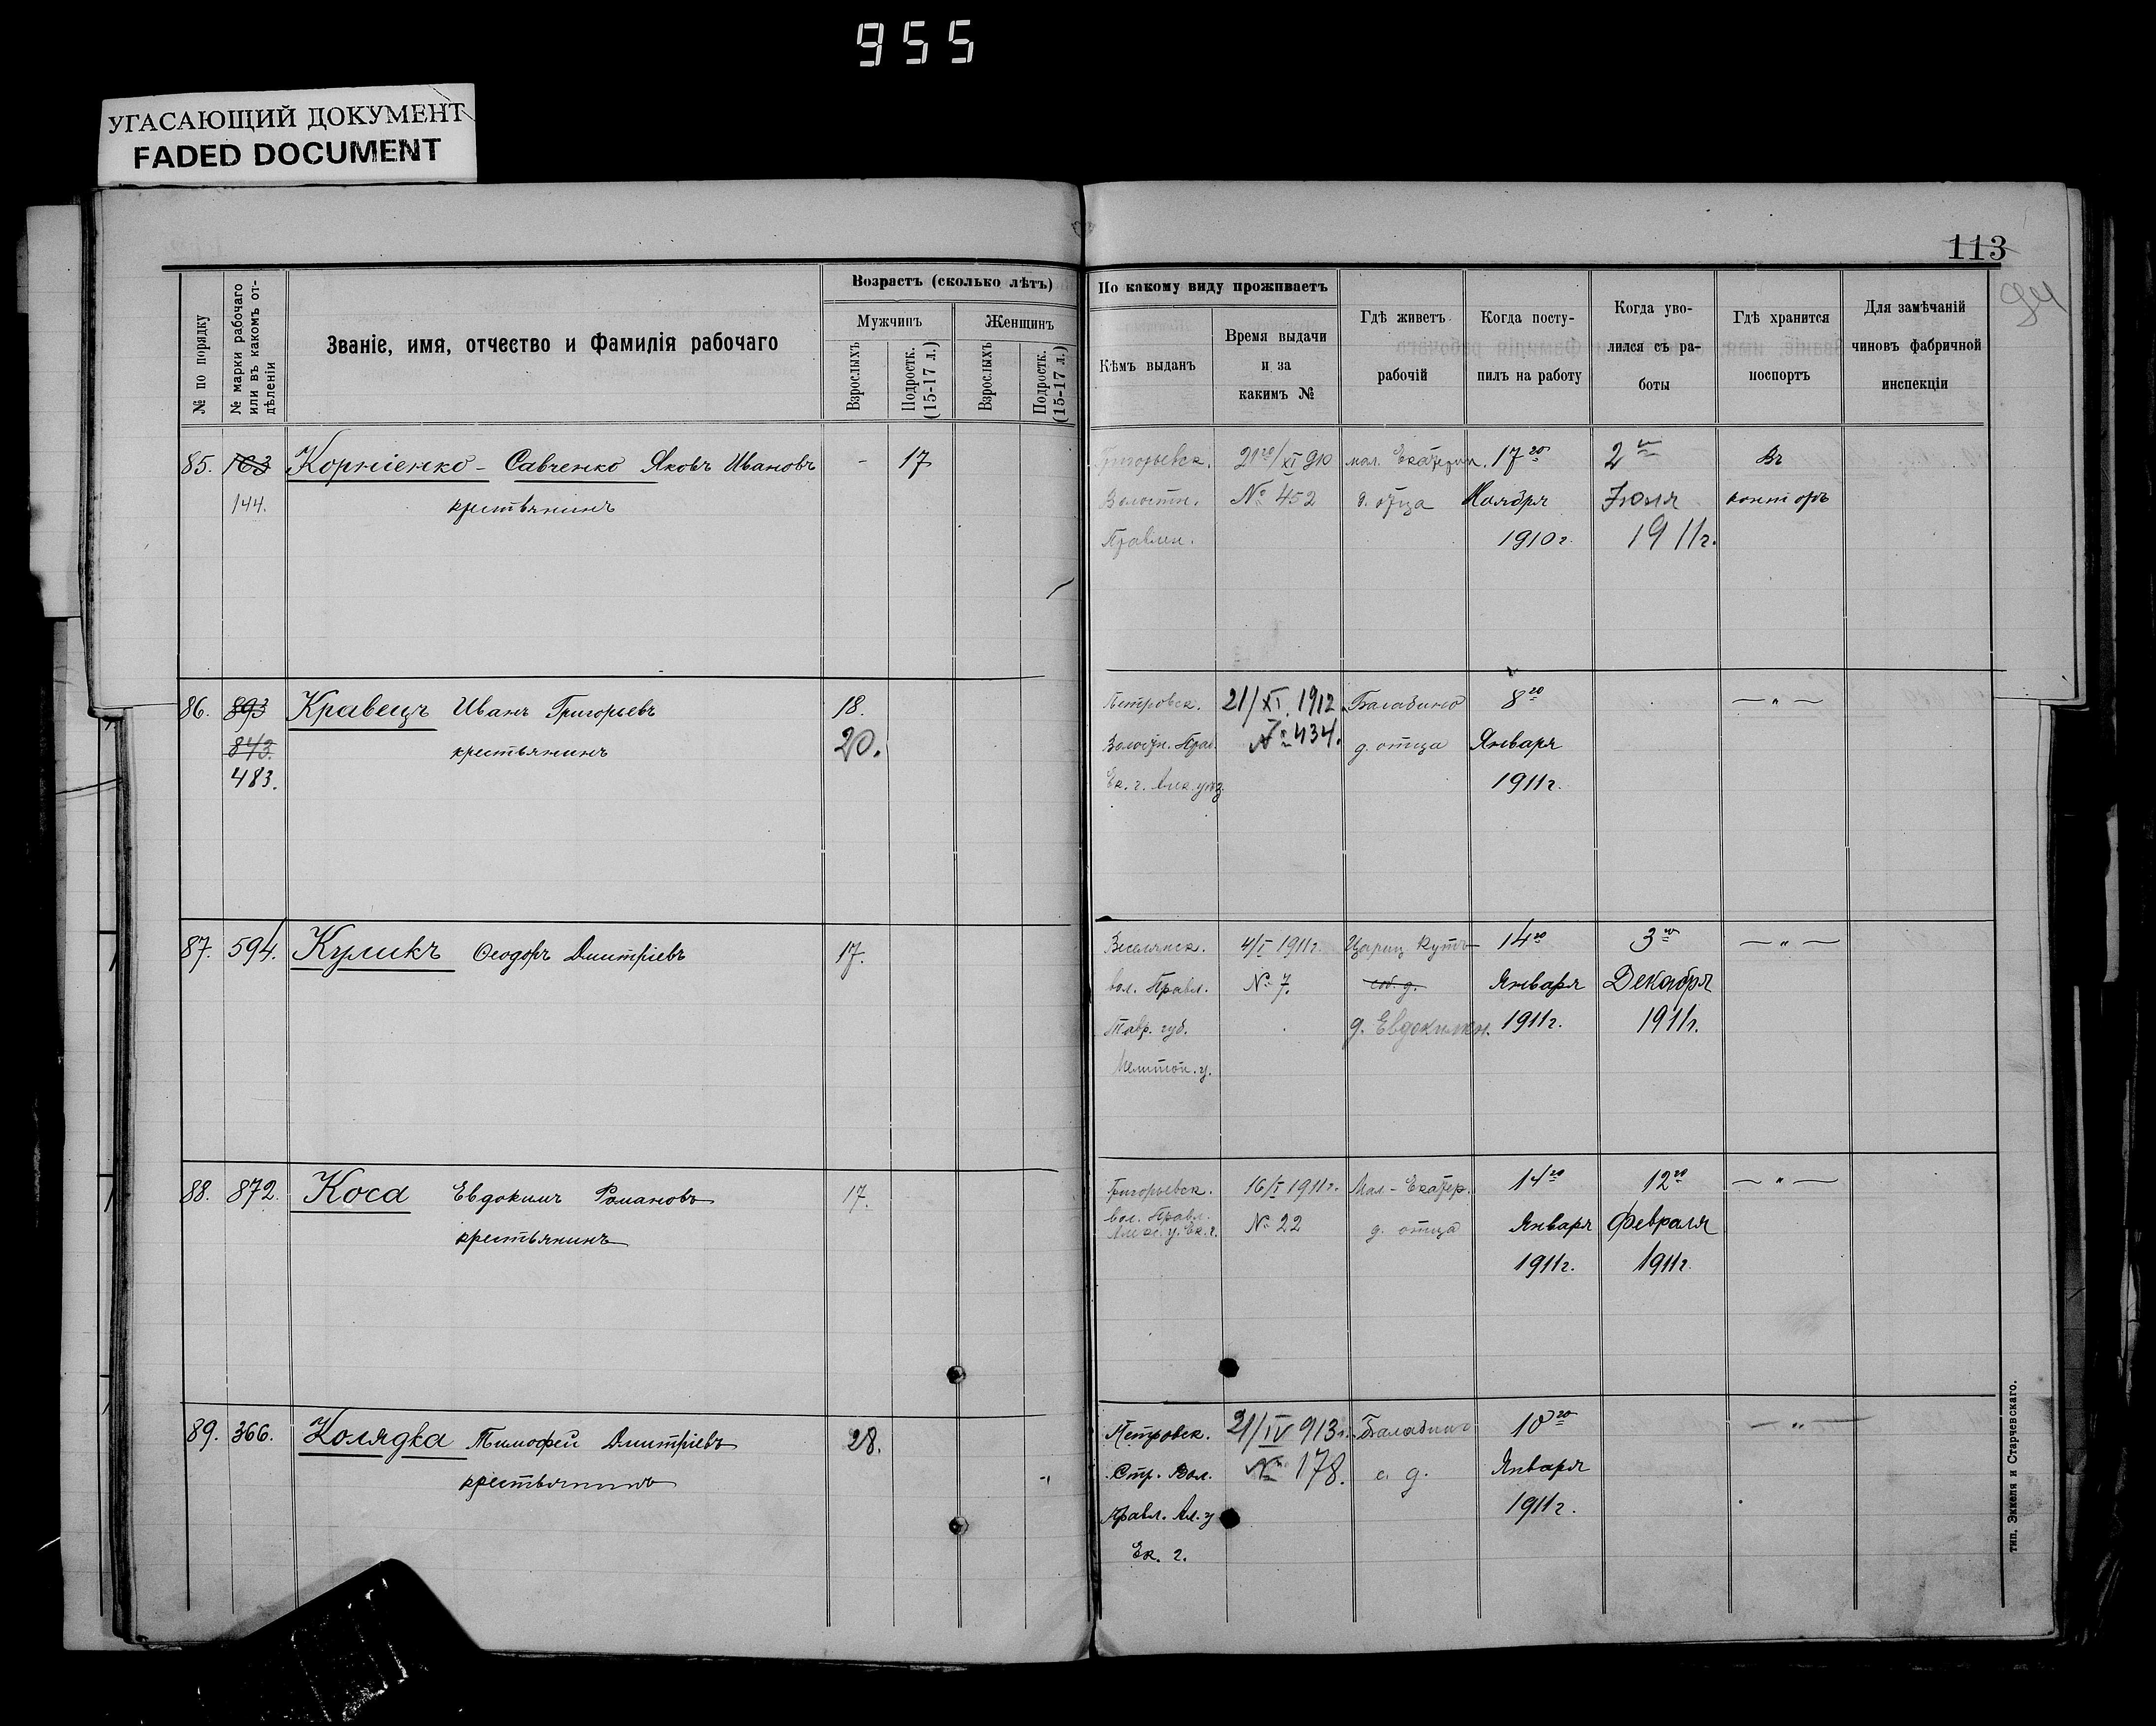 955
УГАСАЮЩИЙ ДОКУМЕНТ
FADED DOCUMENT
113
№ по порядку
№ марки рабочаго или въ какомъ отдѣленіи
Званіе, имя, отчество и фамилія рабочаго
Возрастъ (сколько лѣтъ)
Мужчинъ
Женщинъ
Взрослыхъ
Подростк. (15-17 л.)
Взрослыхъ
Подростк. (15-17 л.)
По какому виду проживаетъ
Кѣмъ выданъ
Время выдачи
и за
какимъ №
Гдѣ живетъ
рабочій
Когда посту-
пилъ на работу
Когда уво-
лился съ ра-
боты
Гдѣ хранится
поспортъ
Для замѣчаній
чиновъ фабричной
инспекціи
85. 103 Корніенко - Савченко Яковъ Ивановъ - 17 Григорьевск. 21го/XI 910 мал. Екатерин. 17го 2го Въ
144. крестьянинъ Волостн. № 452 д. отца Ноября Іюля конторѣ
Правлен. 1910 г. 1911 г.
86. 893 Кравецъ Иванъ Григорьевъ 18. Петровск. 21/XI 1912 Балабино 8го — „ —
843. крестьянинъ 20. Волостн. Прав. № 434. д. отца Января
483. Ек. г. Алек. уѣз. 1911 г.
87. 594. Куликъ Ѳеодоръ Дмитріевъ 17. Веселянск. 4/I 1911 г. Цариц Кутъ 14го 3го — „ —
вол. Правл. № 7. соб. д. Января Декабря
Тавр. губ. д. Евдокимен. 1911 г. 1911 г.
Мелитоп. у.
88. 872. Коса Евдокимъ Романовъ 17. Григорьевск. 16/I 1911 г. Мал-Екатер. 14го 12го — „ —
крестьянинъ вол. Правл. № 22 д. отца Января Февраля
Алекс. у. Ек. г. 1911 г. 1911 г.
89. 366. Колядка Тимофей Дмитріевъ 28. Петровск. 21/IV 913 г. Балабино 10го — „ —
крестьянинъ Стр. Вол. № 178. с. д. Января
Правл. Ал. у 1911 г.
Ек. г.
тип. Эккеля и Старчевскаго.